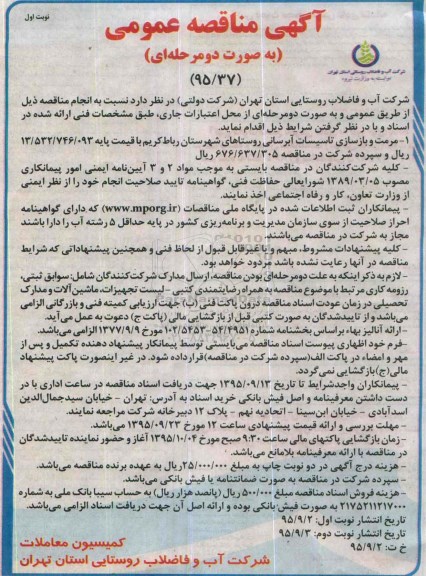 نوبت اول
آگهی مناقصه عمومی
(به صورت دومرحله‌ای)
(۹۵/۳۷)
شرکت آب و فاضلاب روستایی استان تهران
وابسته به وزارت نیرو
شرکت آب و فاضلاب روستایی استان تهران (شرکت دولتی) در نظر دارد نسبت به انجام مناقصه ذیل
از طریق عمومی و به صورت دومرحله‌ای از محل اعتبارات جاری، طبق مشخصات فنی ارائه شده در
اسناد و با در نظر گرفتن شرایط ذیل اقدام نماید.
۱- مرمت و بازسازی تاسیسات آبرسانی روستاهای شهرستان رباط‌کریم با قیمت پایه ۱۳/۵۳۲/۷۴۶/۰۹۳
ریال و سپرده شرکت در مناقصه ۶۷۶/۶۳۷/۳۰۵ ریال
- کلیه شرکت‌کنندگان در مناقصه بایستی به موجب مواد ۲ و ۳ آیین‌نامه ایمنی امور پیمانکاری
مصوب ۱۳۸۹/۰۳/۰۵ شورایعالی حفاظت فنی، گواهینامه تایید صلاحیت انجام خود را از نظر ایمنی
از وزارت تعاون، کار و رفاه اجتماعی اخذ نمایند.
- پیمانکاران ثبت اطلاعات شده در پایگاه ملی مناقصات (www.mporg.ir) که دارای گواهینامه
احراز صلاحیت از سوی سازمان مدیریت و برنامه‌ریزی کشور در پایه حداقل ۵ رشته آب را دارا باشند
مجاز به شرکت در مناقصه می‌باشند.
- کلیه پیشنهادات مشروط، مبهم و یا غیرقابل قبول از لحاظ فنی و همچنین پیشنهاداتی که شرایط
مناقصه در آنها رعایت نشده باشد مردود خواهد بود.
- لازم به ذکر اینکه به علت دومرحله‌ای بودن مناقصه، ارسال مدارک شرکت‌کنندگان شامل: سوابق ثبتی،
رزومه کاری مرتبط با موضوع مناقصه به همراه رضایتمندی کتبی - لیست تجهیزات، ماشین‌آلات و مدارک
تحصیلی در زمان عودت اسناد مناقصه درون پاکت فنی (ب) جهت ارزیابی کمیته فنی و بازرگانی الزامی
می‌باشد و از تاییدشدگان به صورت کتبی قبل از بازگشایی مالی (پاکت ج) دعوت به عمل می‌آید.
- ارائه آنالیز بهاء براساس بخشنامه شماره ۵۴/۴۹۵۱-۱۰۲/۵۴۵۳ مورخ ۱۳۷۷/۹/۹ الزامی می‌باشد.
- فرم خود اظهاری پیوست اسناد مناقصه می‌بایستی توسط پیمانکار پیشنهاد دهنده تکمیل و پس از
مهر و امضاء در پاکت الف(سپرده شرکت در مناقصه)قرارداده شود. در غیر اینصورت پاکت پیشنهاد
مالی(ج)بازگشایی نمی‌گردد.
- پیمانکاران واجدشرایط تا تاریخ ۱۳۹۵/۰۹/۱۳ جهت دریافت اسناد مناقصه در ساعت اداری با در
دست داشتن معرفینامه و اصل فیش بانکی خرید اسناد به آدرس: تهران - خیابان سیدجمال‌الدین
اسدآبادی - خیابان ابن‌سینا - اتحادیه نهم - پلاک ۱۲ دبیرخانه شرکت مراجعه نمایند.
- مهلت بررسی و ارائه قیمت پیشنهادی ساعت ۱۲ مورخ ۱۳۹۵/۰۹/۲۳ می‌باشد.
- زمان بازگشایی پاکتهای مالی ساعت ۹:۳۰ صبح مورخ ۱۳۹۵/۱۰/۰۴ آغاز و حضور نماینده تاییدشدگان
در مناقصه با ارائه معرفینامه بلامانع می‌باشد.
- هزینه درج آگهی در دو نوبت چاپ به مبلغ ۲۵/۰۰۰/۰۰۰ ریال به عهده برنده مناقصه می‌باشد.
- سپرده شرکت در مناقصه به صورت ضمانتنامه یا فیش بانکی می‌باشد.
- هزینه فروش اسناد مناقصه مبلغ ۵۰۰/۰۰۰ ریال (پانصد هزار ریال) به حساب سیبا بانک ملی به شماره
۲۱۷۵۲۱۱۲۱۷۰۰۰ به صورت فیش بانکی بوده و ارائه اصل آن جهت دریافت اسناد الزامی می‌باشد.
تاریخ انتشار نوبت اول: ۹۵/۹/۲
تاریخ انتشار نوبت دوم: ۹۵/۹/۳
خ ت: ۹۵/۹/۲
کمیسیون معاملات
شرکت آب و فاضلاب روستایی استان تهران